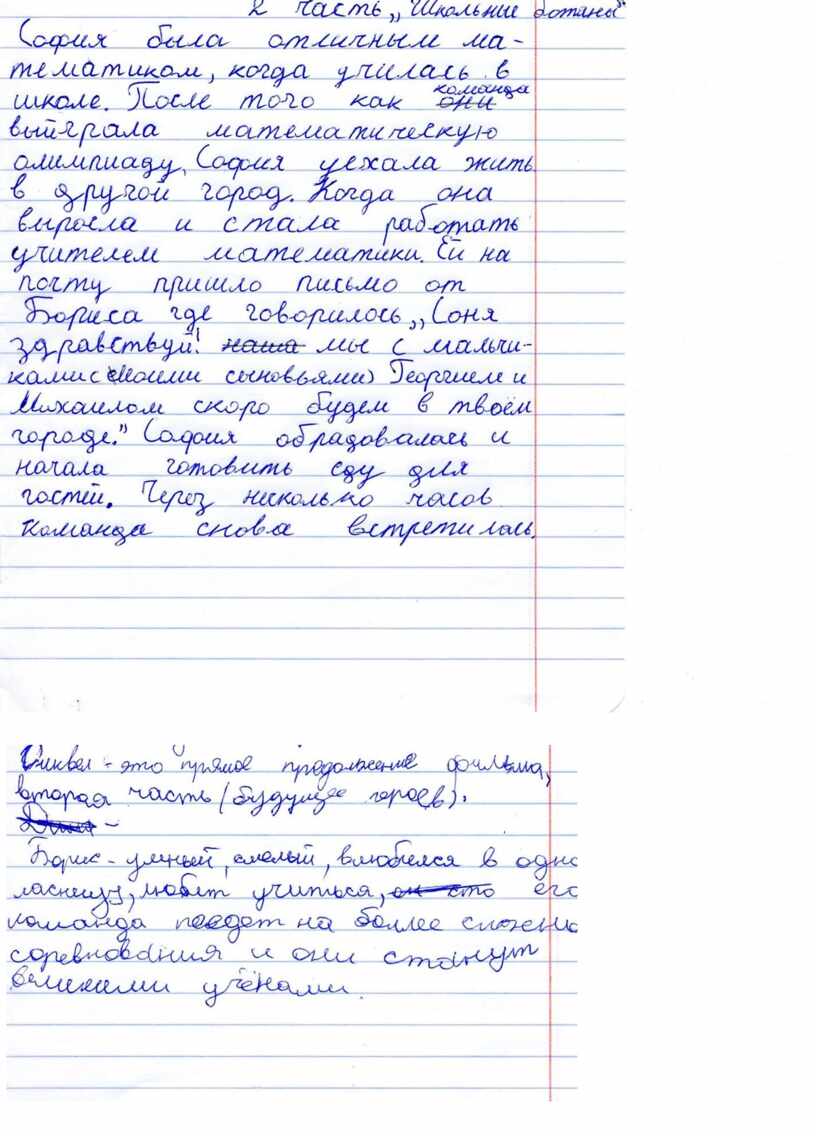 2 часть „Школьные ботаны"
София была отличным ма-
тематиком, когда училась в
школе. После того как команда
выйграла математическую
олимпиаду, София уехала жить
в другой город. Когда она
выросла и стала работать
учителем математики. Ей на
почту пришло письмо от
Бориса где говорилось „Соня
здравствуй! наша мы с мальчи-
ками с (моими сыновьями) Георгием и
Михаилом скоро будем в твоём
городе." София обрадовалась и
начала готовить еду для
гостей. Через несколько часов
команда снова встретилась.
Сиквел - это прямое продолжение фильма,
вторая часть (будущее героев).
Борис - умный, смелый, влюбился в одно
ласницу, любит учиться, его
команда поедет на более сложно
соревнования и они станут
великими учёнами.